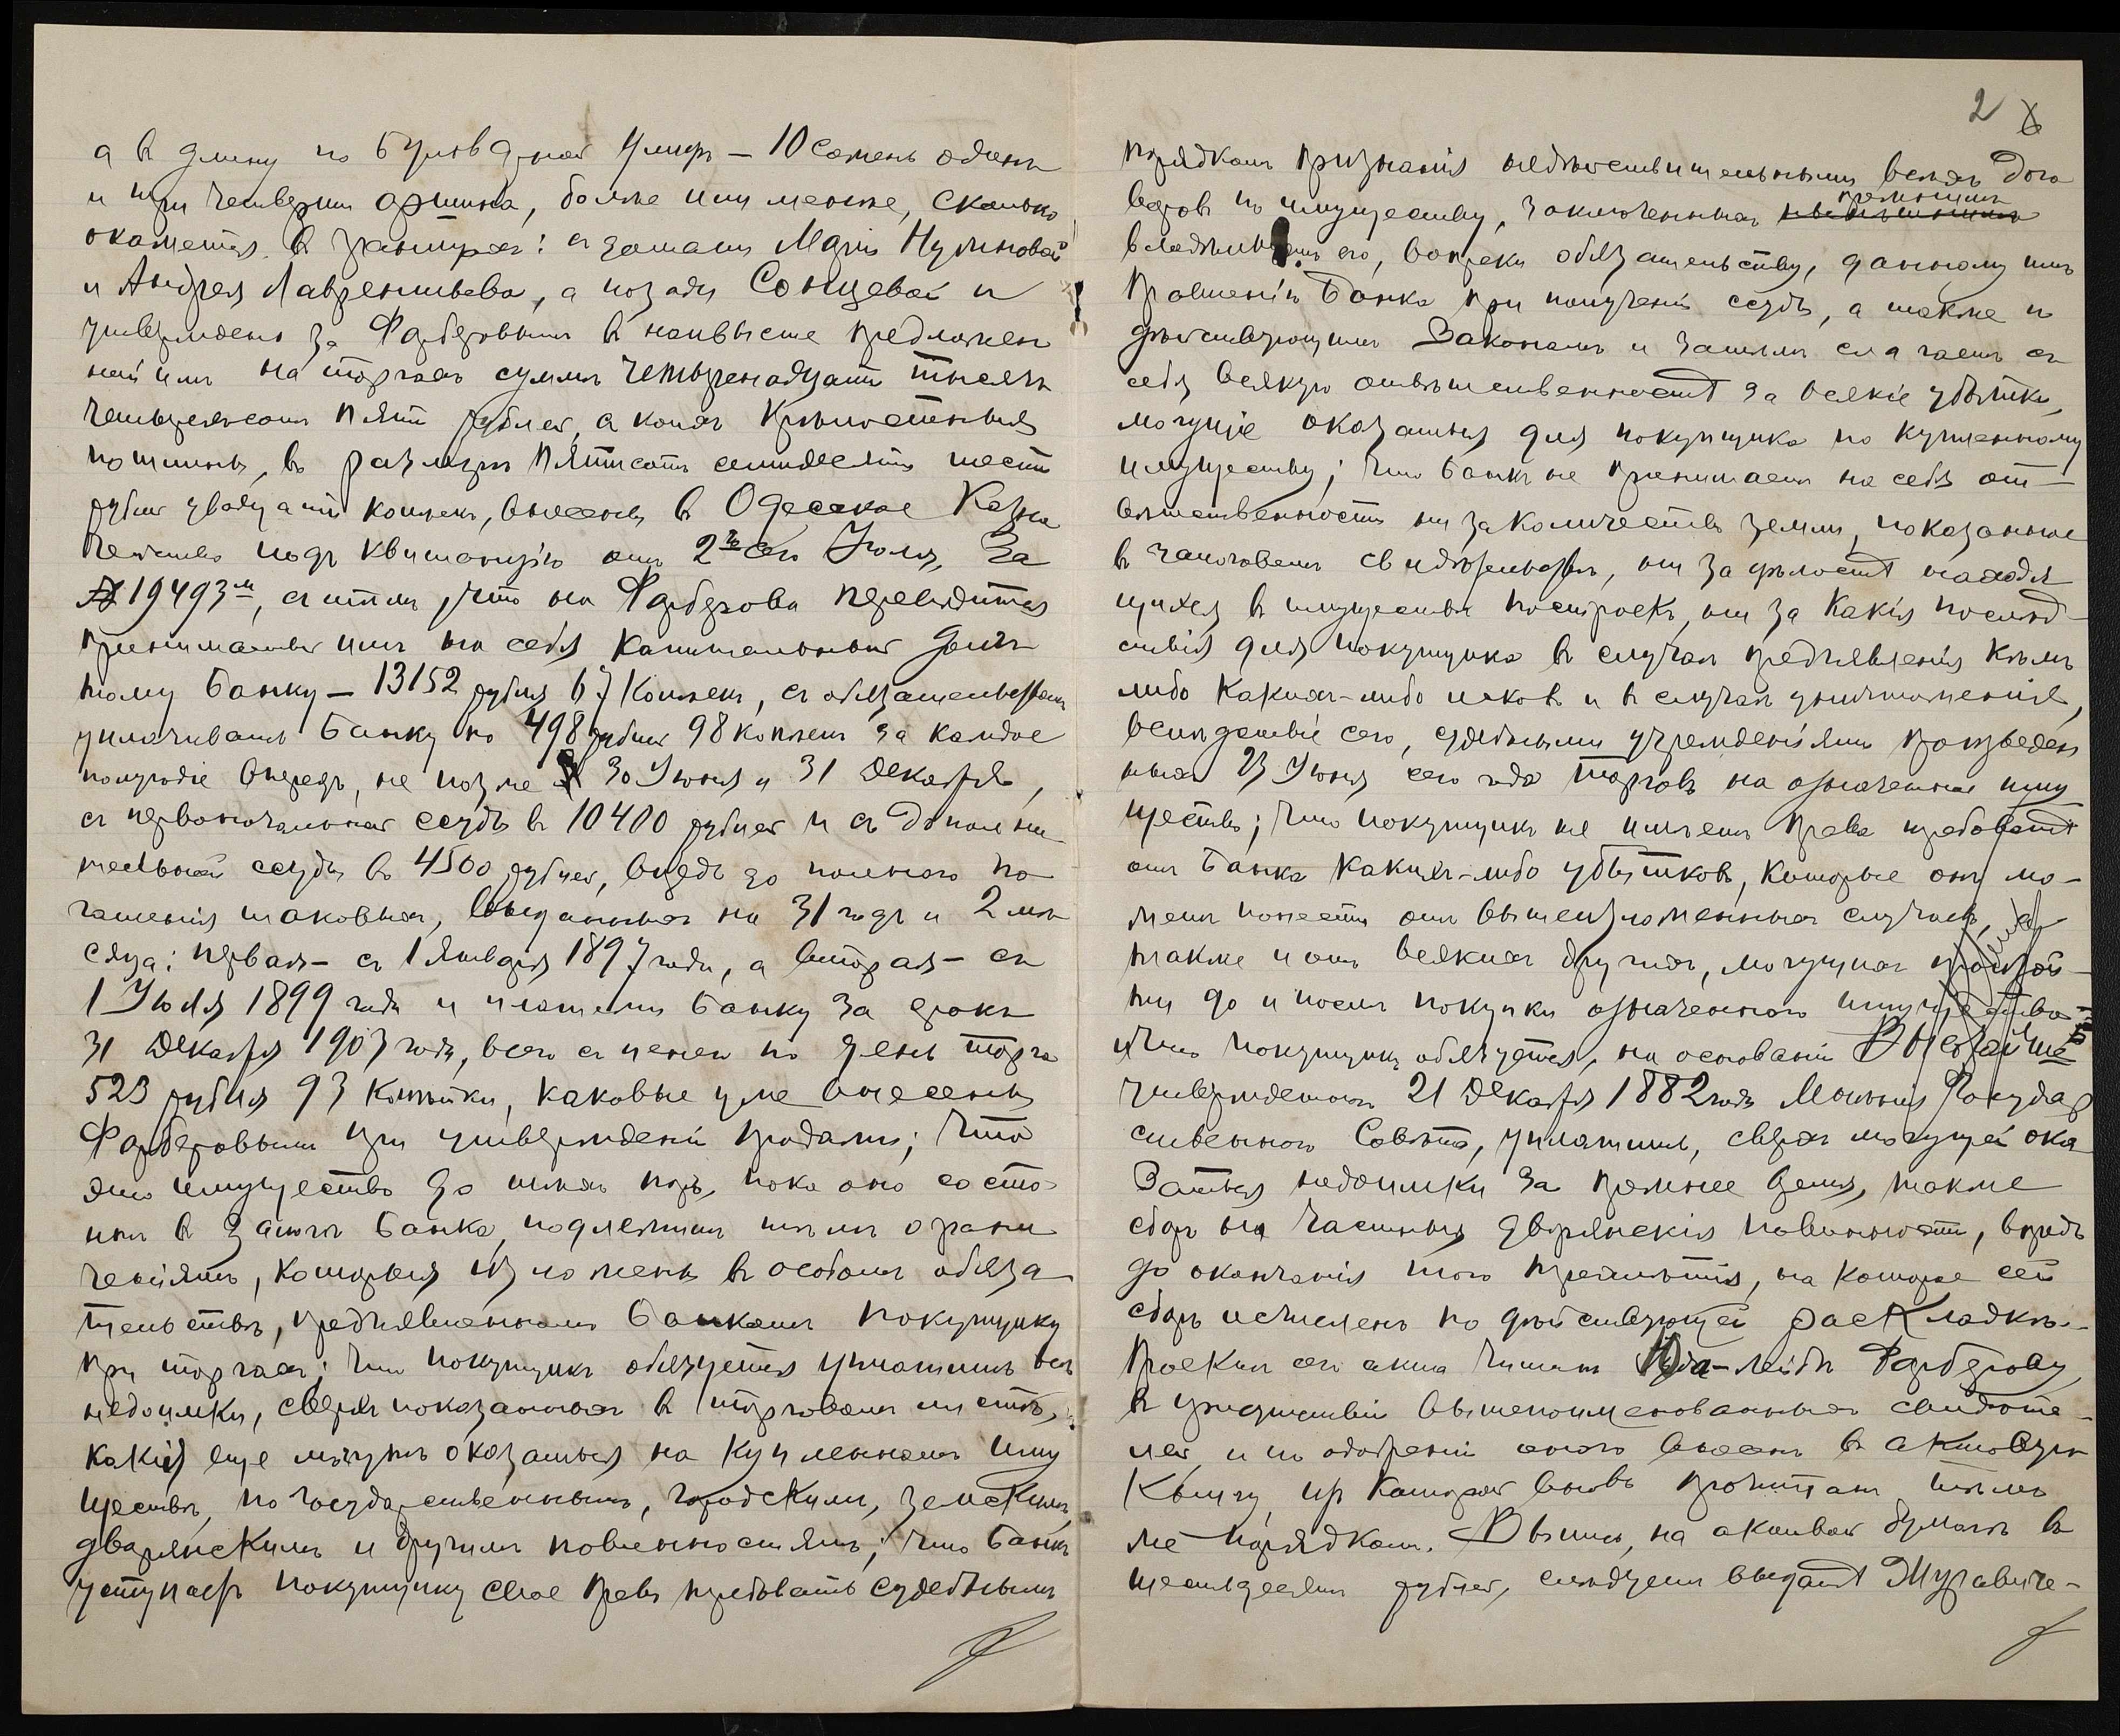 а въ длину по Бульварной улицѣ – 10 сажень одинъ
и три четверти аршина, болѣе или менѣе, сколько
окажется въ границахъ: съ домами Маріи Нулиновой
и Андрея Лаврентьева, а позади Солнцевой и
утверждено за Фарберовымъ въ наивысше предложен
ной имъ на торгахъ суммѣ четырнадцати тысячъ
четырехсотъ пяти рублей, съ коихъ крѣпостныя
пошлины, въ размѣрѣ пятисотъ семидесяти шести
рублей двадцати копѣекъ, внесены въ Одесское Казна
чейство подъ квитанцію отъ 2го сего Іюля, за
№ 19493м, съ тѣмъ, что на Фарберова переводится
принимаемый имъ на себя капитальный долгъ
тому Банку – 13152 рубля 67 копѣекъ, съ обязательствомъ
уплачивать Банку по 498 рублей 98 копѣекъ за каждое
полугодіе впередъ, не позже 30 Іюня и 31 Декабря,
съ первоначальной ссуды въ 10400 рублей и съ дополни
тельной ссуды въ 4500 рублей, впредь до полнаго по
гашенія таковыхъ, выданныхъ на 31 годъ и 2 мѣ
сяца: первая – съ 1 Января 1897 года, а вторая – съ
1 Іюля 1899 года и платежи Банку за срокъ
31 Декабря 1903 года, всего съ пеней по день торга
523 рубля 93 копѣйки, каковые уже внесены
Фарберовымъ при утвержденіи продажи; что
это имущество до тѣхъ поръ, пока оно состо
итъ въ залогѣ Банка, подлежитъ тѣмъ ограни
ченіямъ, которыя изложены въ особомъ обяза
тельствѣ, предъявленномъ Банкомъ покупщику
при торгахъ; что покупщикъ обязуется уплатить всѣ
недоимки, сверхъ показанныхъ въ торговомъ листѣ,
какія еще могутъ оказаться на купленномъ иму
ществѣ, по государственнымъ, городскимъ, земскимъ,
дворянскимъ и другимъ повинностямъ; что Банкъ
уступаетъ покупщику свое право требовать судебнымъ
2
порядкомъ признанія недѣйствительными всѣхъ дого
прежнимъ
воровъ по имуществу, заключенныхъ
владѣльцемъ его, вопреки обязательству, данному имъ
Правленію Банка при полученіи ссудъ, а также и
дѣйствующимъ законамъ и затѣмъ слагаетъ съ
себя всякую отвѣтственность за всякіе убытки,
могущіе оказаться для покупщика по купленному
имуществу; что Банкъ не принимаетъ на себя от–
вѣтственности ни за количество земли, показанное
въ залоговомъ свидѣтельствѣ, ни за цѣлость находя
щихся въ имуществѣ построекъ, ни за какія послѣд–
ствія для покупщика въ случаѣ предъявленія кѣмъ
либо какихъ-либо исковъ и въ случаѣ уничтоженія,
вслѣдствіе сего, судебными учрежденіями произведен
ныхъ 23 Іюня сего года торговъ на означенное иму
щество; что покупщикъ не имѣетъ права требовать
отъ Банка какихъ-либо убытковъ, которые онъ мо–
жетъ понести отъ вышеизложенныхъ случаевъ, а
также и отъ всякихъ другихъ, могущихъ произой–
ти до и послѣ покупки означеннаго имущества
и что покупщикъ обязуется, на основаніи Высочайше
утвержденнаго 21 Декабря 1882 года Мнѣнія Государ
ственнаго Совѣта, уплатить, сверхъ могущей ока
заться недоимки за прежнее время, также
сборъ на частныя дворянскія повинности, впредь
до окончанія того трехлѣтія, на которое сей
сборъ исчисленъ по дѣйствующей раскладкѣ.–
Проектъ сего акта читанъ Юда-Лейбѣ Фарберову
въ присутствіи вышепоименованныхъ свидѣте–
лей и по одобреніи онаго внесенъ въ актовую
книгу, изъ которой вновь прочитанъ тѣмъ
же порядкомъ. Выпись, на актовой бумагѣ въ
шестьдесятъ рублей, слѣдуетъ выдать Журавиче–